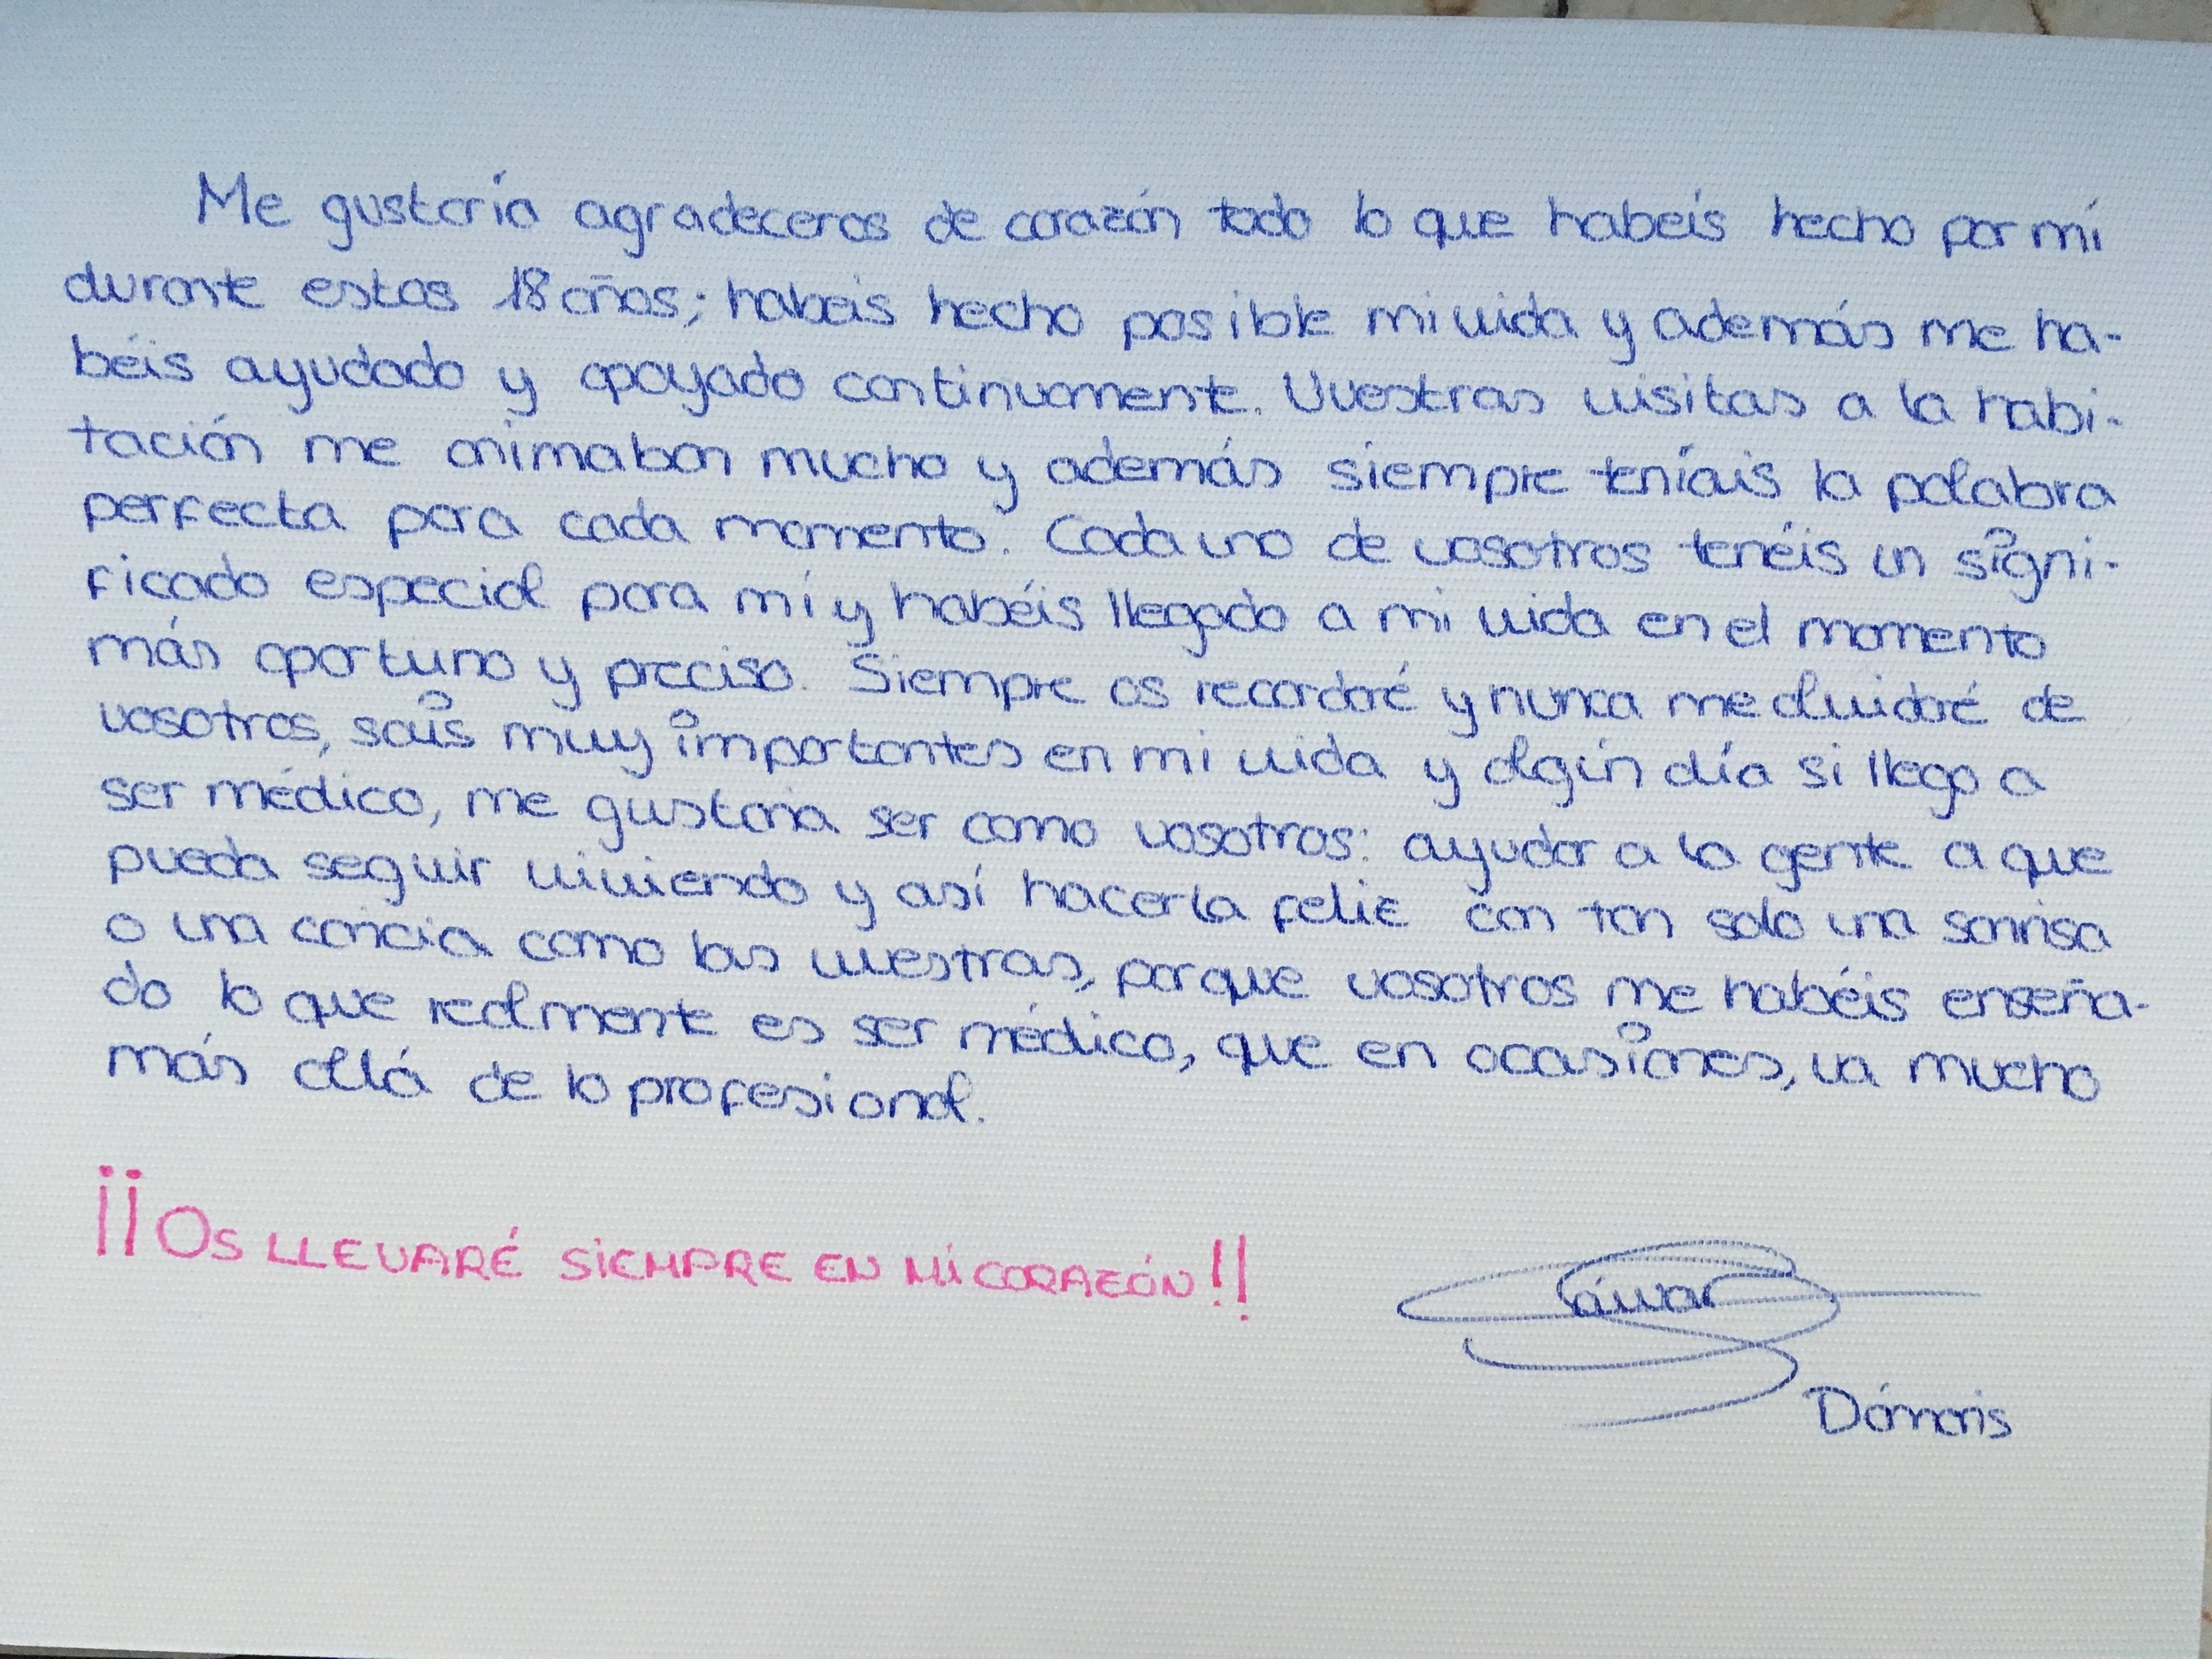 Me gustaría agradeceros de corazón todo lo que habéis hecho por mí
durante estos 18 años; habéis hecho posible mi vida y además me ha-
béis ayudado y apoyado continuamente. Vuestras visitas a la habi-
tación me animaban mucho y además siempre teníais la palabra
perfecta para cada momento. Cada uno de vosotros tenéis un signi-
ficado especial para mí y habéis llegado a mi vida en el momento
más oportuno y preciso. Siempre os recordaré y nunca me olvidaré de
vosotros, sois muy importantes en mi vida y algún día si llego a
ser médico, me gustaría ser como vosotros: ayudar a la gente a que
pueda seguir viviendo y así hacerla feliz con tan solo una sonrisa
o una caricia como las vuestras, porque vosotros me habéis enseña-
do lo que realmente es ser médico, que en ocasiones, va mucho
más allá de lo profesional.
¡¡OS LLEVARÉ SIEMPRE EN MI CORAZÓN!!
Dámaris